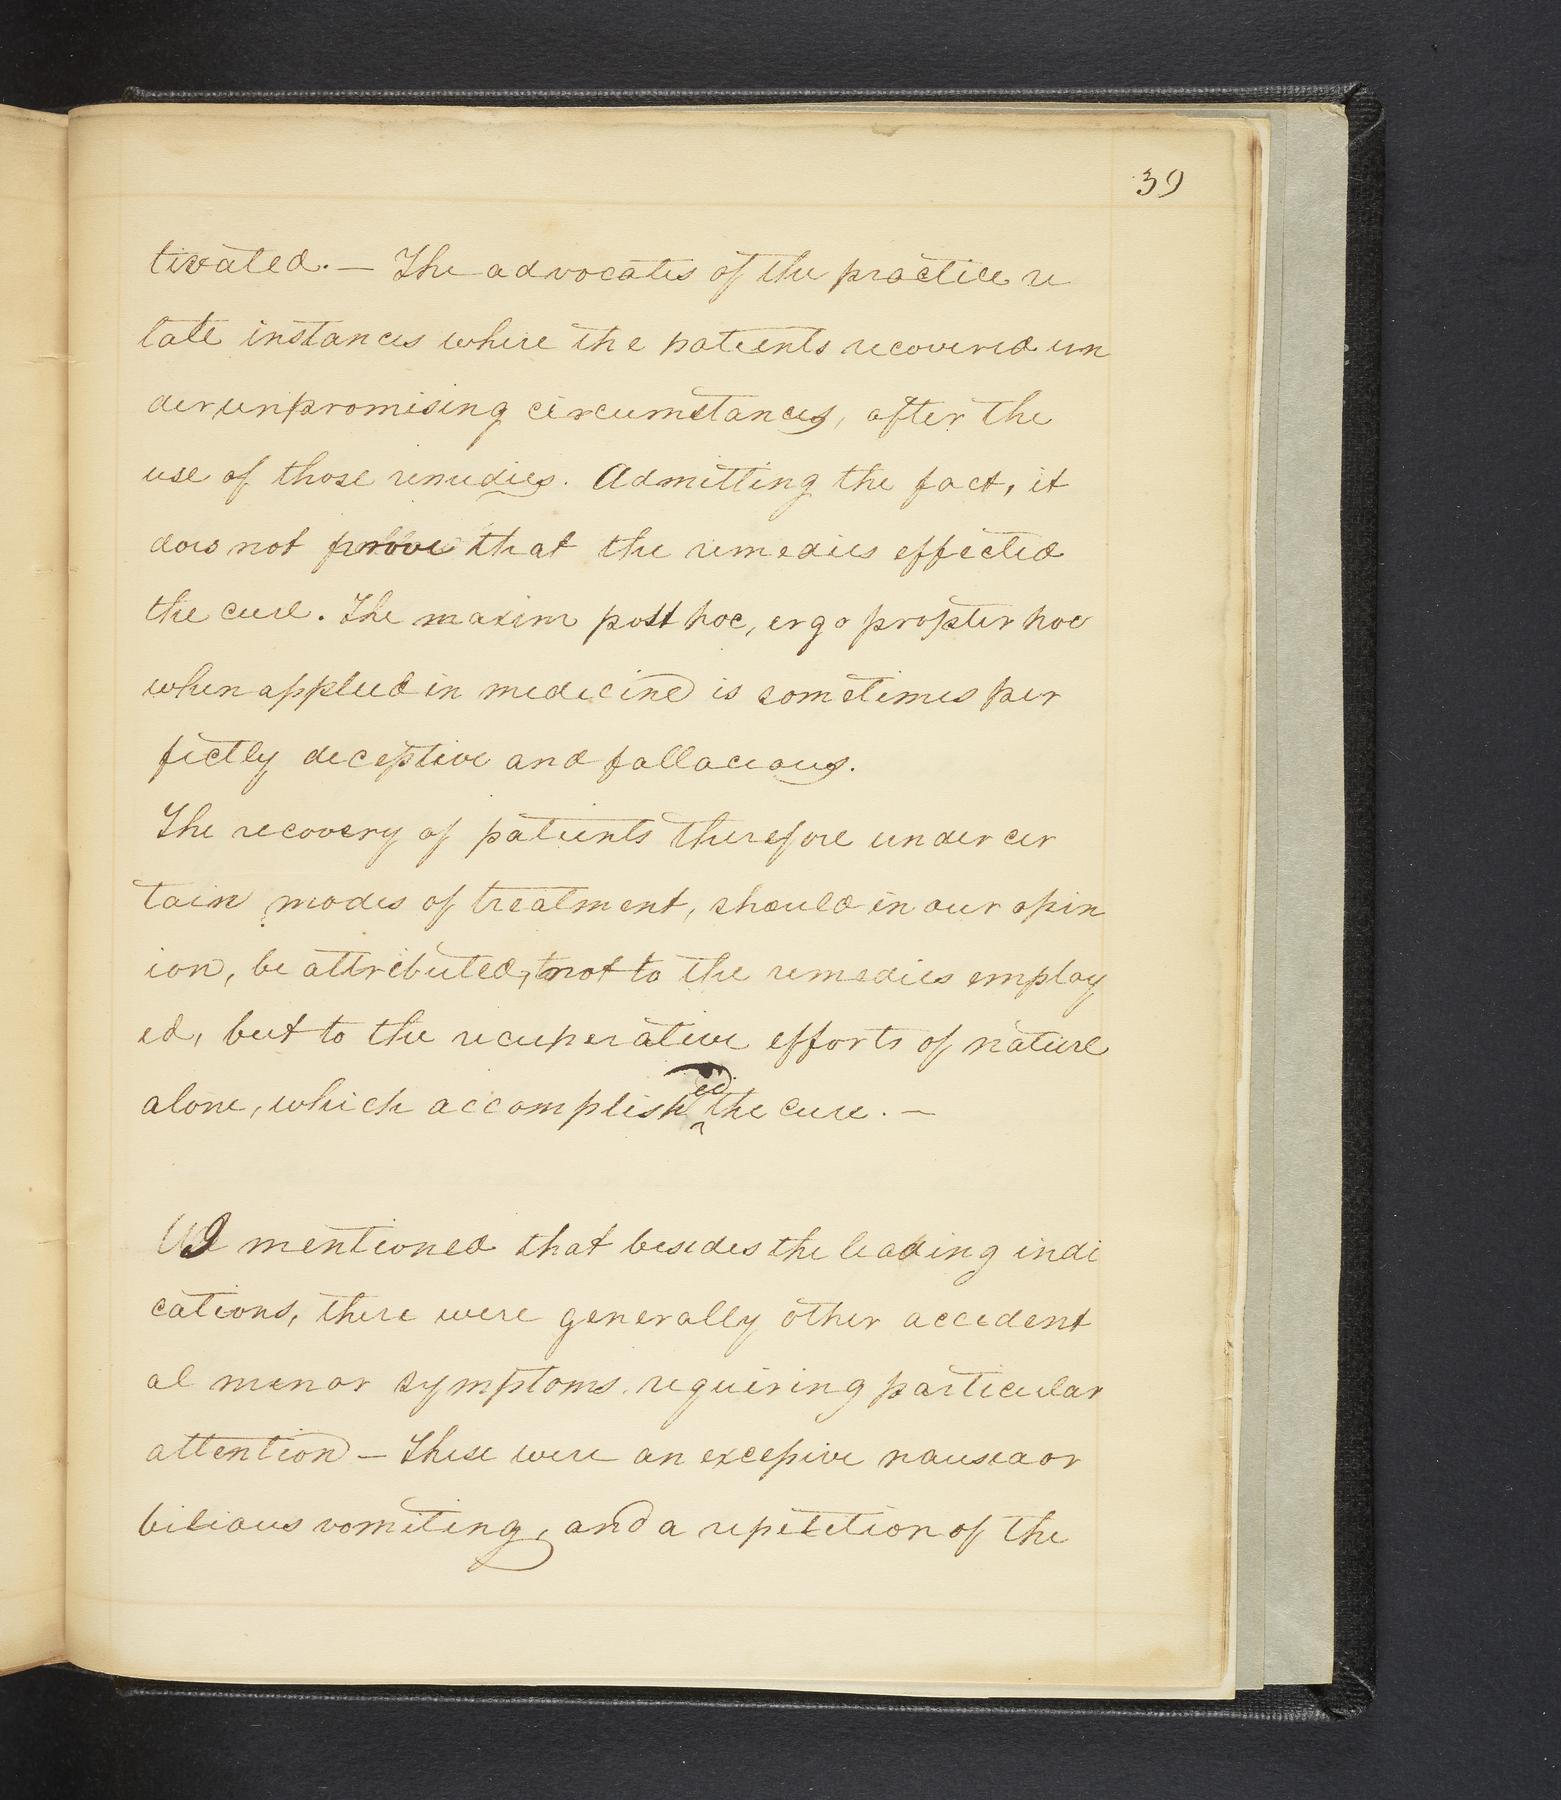 39
tivated. — The advocates of the practice re
late instances where the patients recovered un
der unpromising circumstances, after the
use of those remedies. Admitting the fact, it
does not prove that the remedies effected
the cure. The maxim post hoc, ergo propter hoc
when applied in medicine is sometimes per
fectly deceptive and fallacious.
The recovery of patients therefore under cer
tain modes of treatment, should in our opin
ion, be attributed, not to the remedies employ
ed, but to the recuperative efforts of nature
alone, which accomplished the cure. —
I mentioned that besides the leading indi
cations, there were generally other accident
al minor symptoms requiring particular
attention — These were an excessive nausea or
bilious vomiting, and a repetition of the